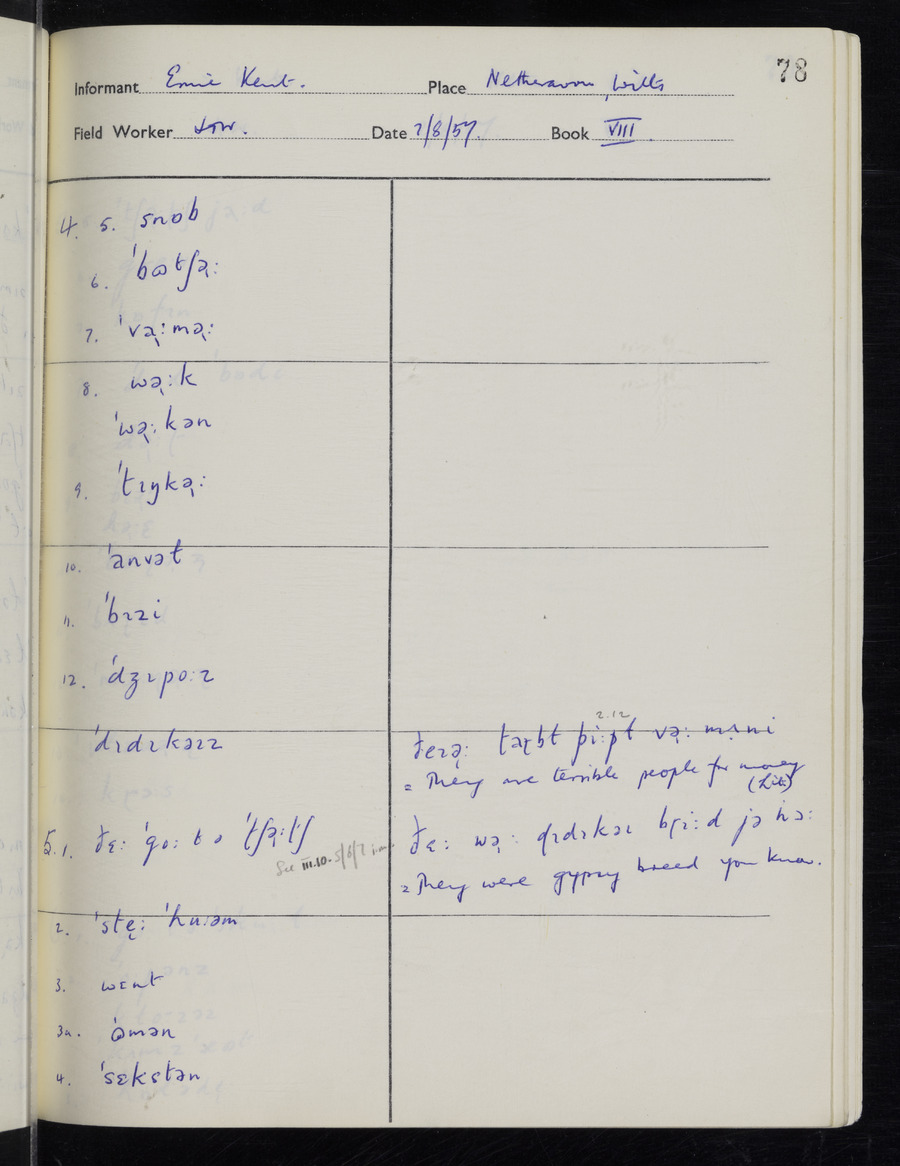 78
Informant Ernie Kent. Place Netheravon, Wilts
Field Worker Date 7/8/57. Book VIII
4. 5. snob
6. ˈbɷtʃə̢:
7. ˈvə̢:mə̢:
8. wə̢:k
ˈwə̢:kən
9. ˈtɪŋkə̢:
10. ˈanvət
11. ˈbɪzi
12. ˈdʒɪpo:z
ˈdɪdɪkəɪz
2.12
= They are terrible people for money
(Lit.)
5.1. ðɛ: ˈgo: tə ˈtʃə̢:tʃ
See III.10.
= They were gypsy breed you know.
2. ˈste̢: ˈhu:əm
3. wɛnt
3a. ˈɷmən
4. ˈsɛkstən